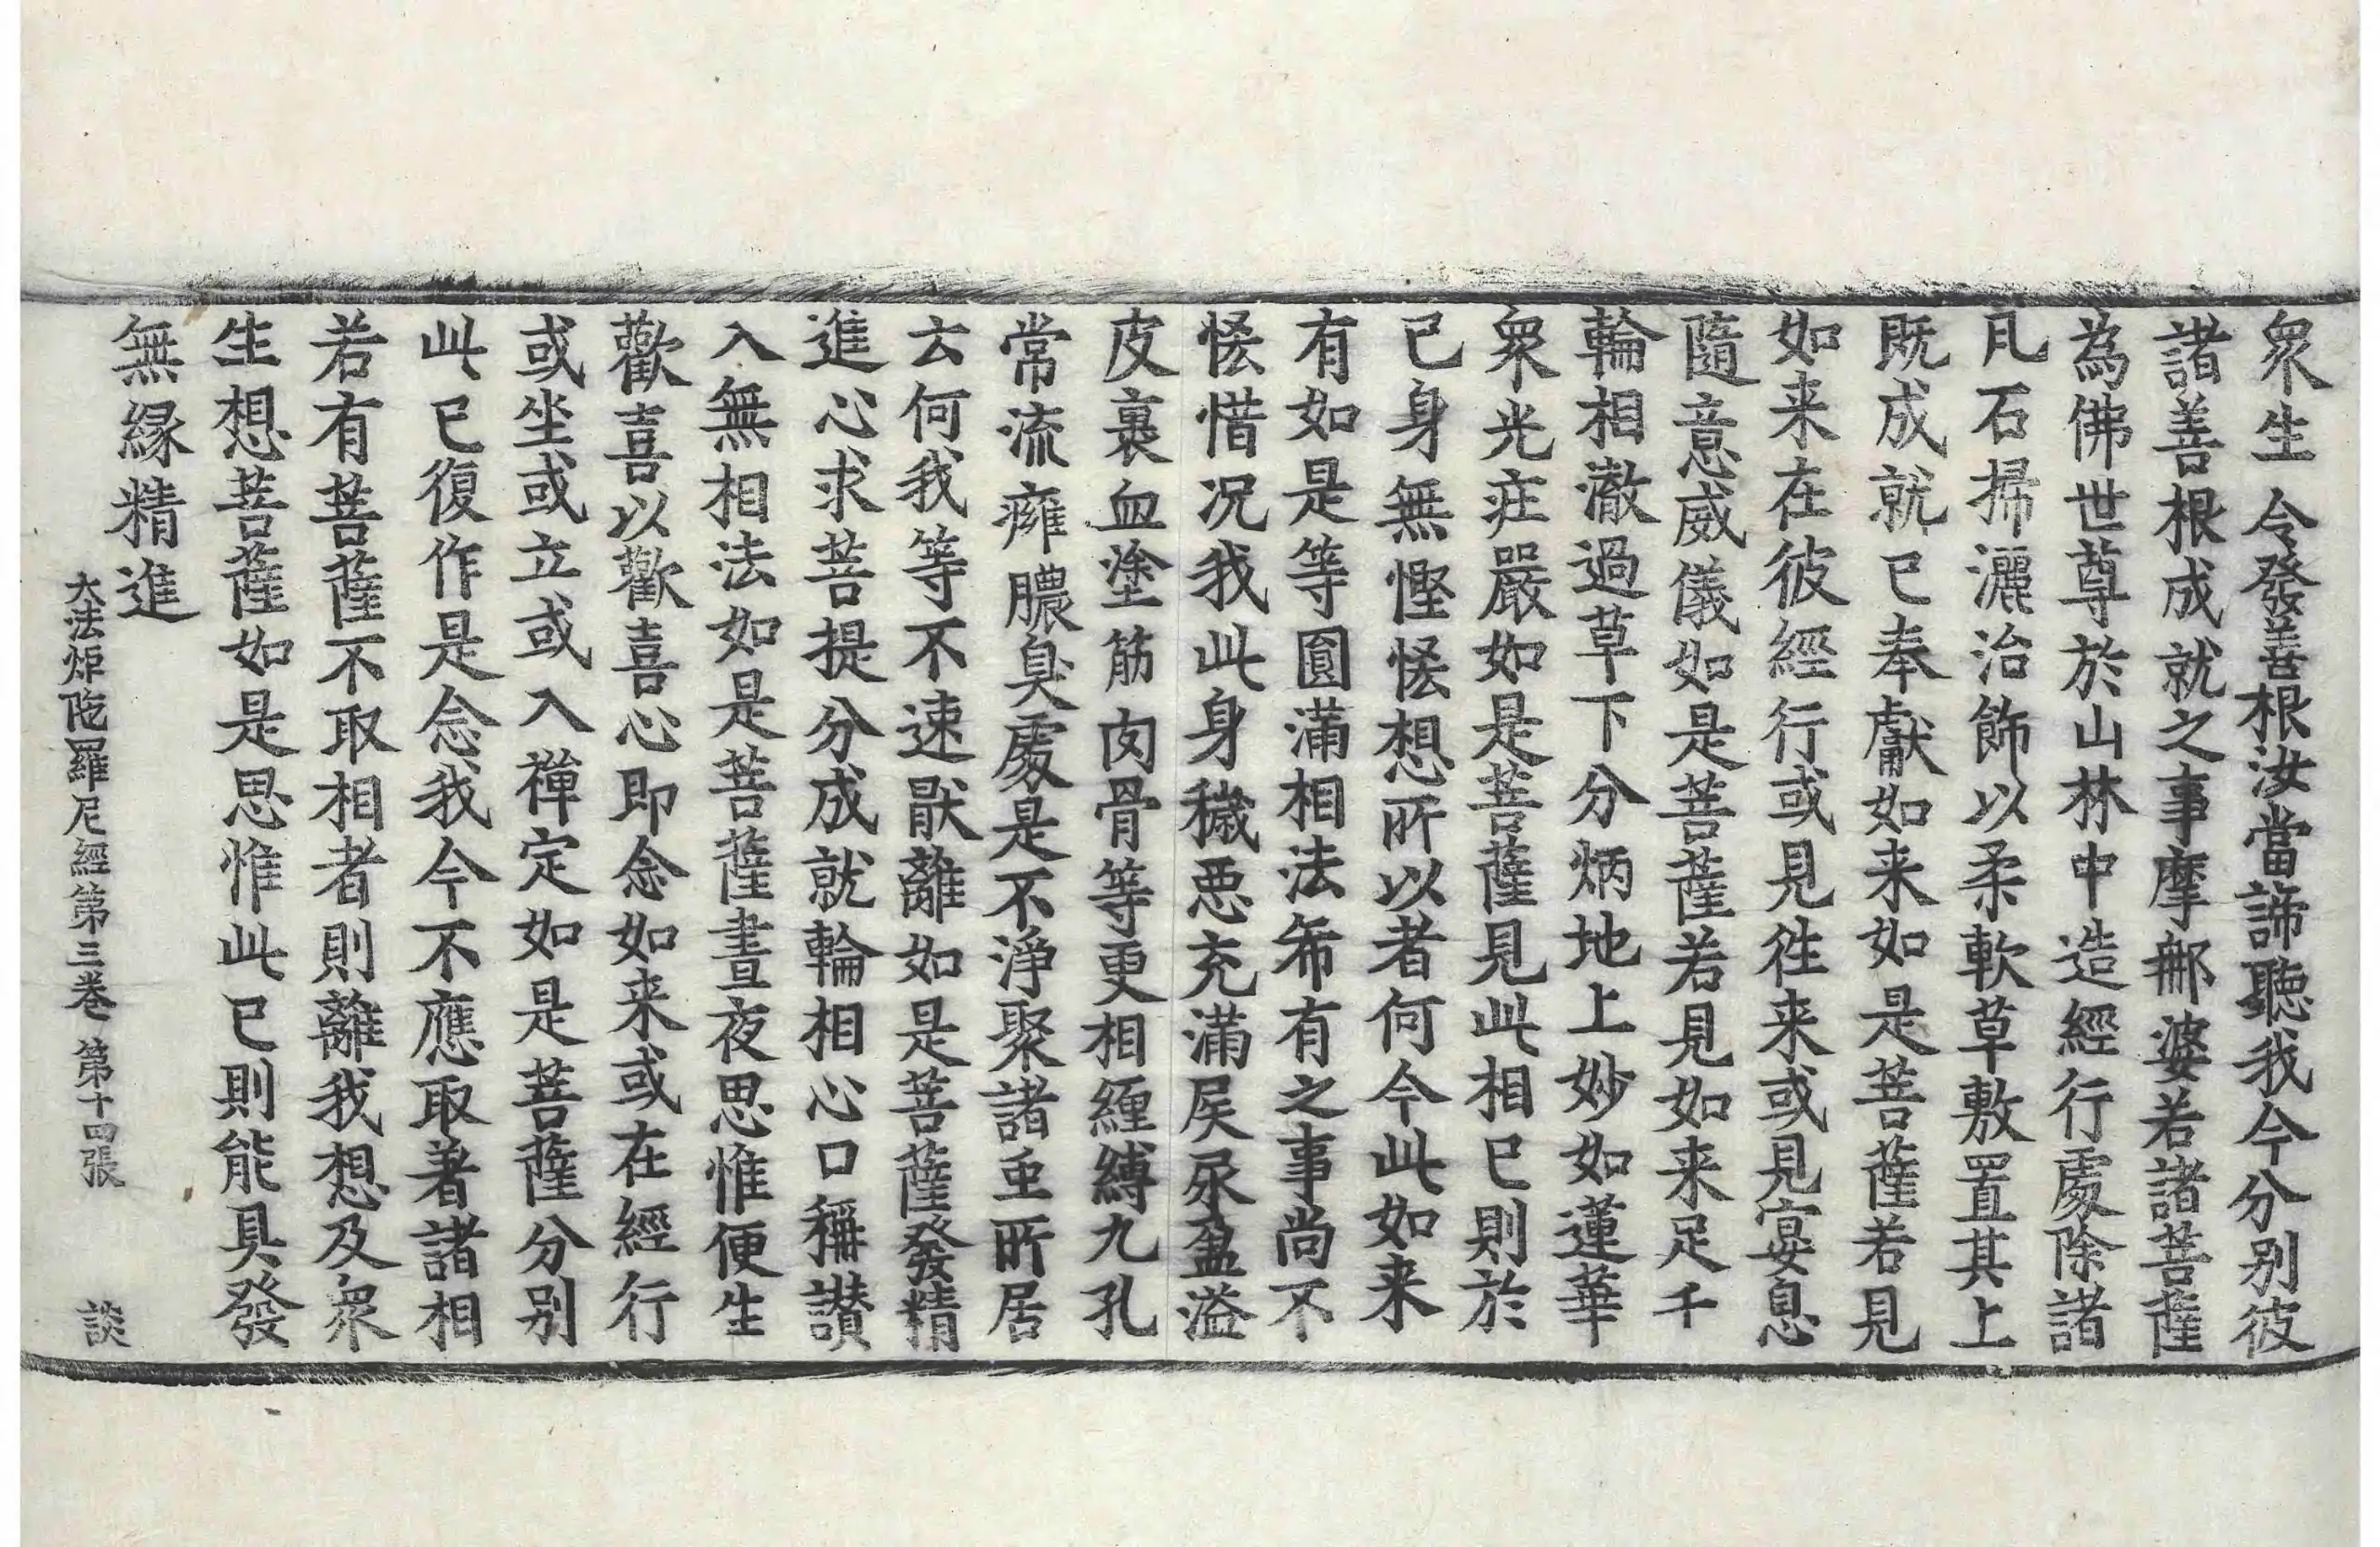 衆生令發善根汝當諦聽我今分别彼
諸善根成就之事摩那婆若諸菩薩
為佛世尊於山林中造經行處除諸
凡石掃灑治飾以柔軟草敷置其上
既成就已奉獻如来如是菩薩若見
如来在彼經行或見往来或見宴息
隨意威儀如是菩薩若見如来足千
輪相澈過草下分炳地上妙如蓮華
衆光疘嚴如是菩薩見此相已則於
已身無慳悋想所以者何今此如来
有如是等圓滿相法希有之事尚不
悋惜况我此身穢惡充滿屎尿盈溢
皮裹血塗筋肉骨等更相纏縛九孔
常流癰膿臭處是不淨聚諸虫所居
云何我等不速猒離如是菩薩發精
進心求菩提分成就輪相心口稱讃
入無相法如是菩薩晝夜思惟便生
歡喜以歡喜心即念如来或在經行
或坐或立或入禪定如是菩薩分别
此已復作是念我今不應取著諸相
若有菩薩不取相者則離我想及衆
生想菩薩如是思惟此已則能具發
無緣精進
大法炬陁羅尼經第三卷 第十四張 談